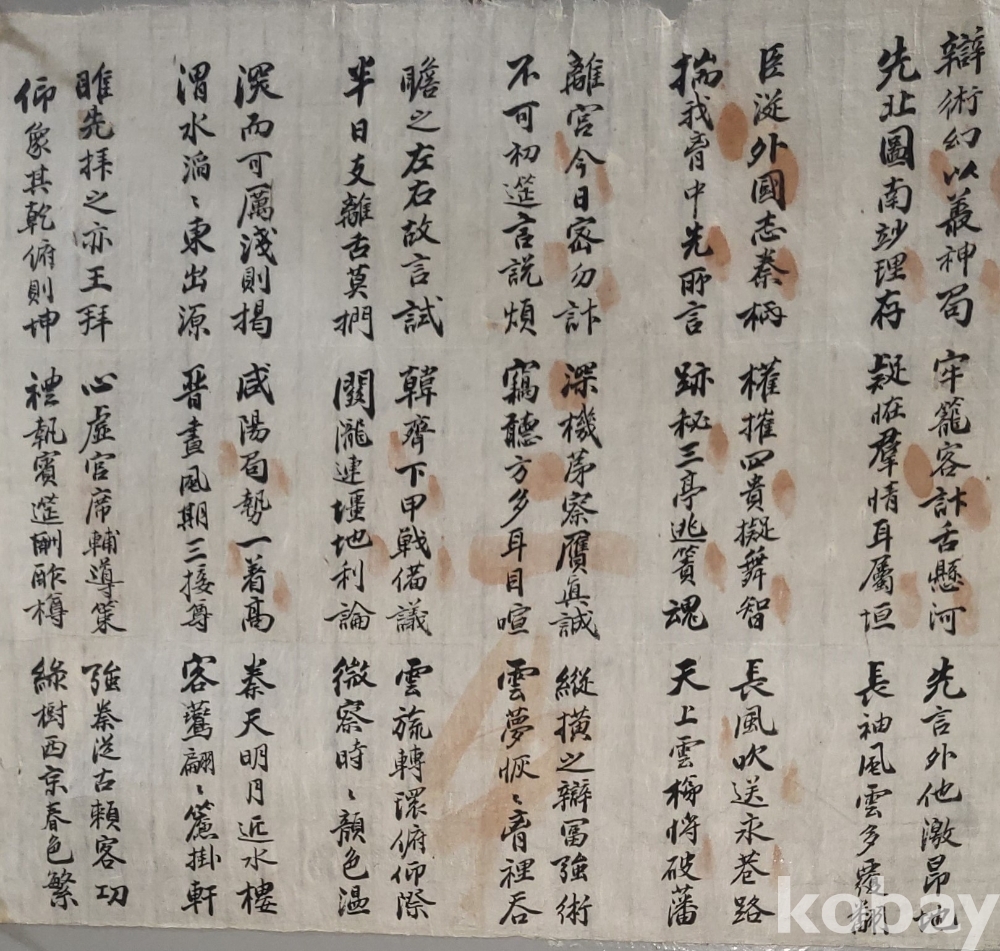 辯術幻以叢神局 牢籠客計舌懸河 先言外他激昂地
先北圖南竗理存 疑在羣情耳屬垣 長袖風雲多覆翻
臣從外國志秦柄 權摧四貴擬舞智 長風吹送永巷路
揣我胷中先所言 跡秘三亭逃簀魂 天上雲梯將破藩
離宮今日密勿計 深機茅察贋眞誠 縱橫之辯富強術
不可初筵言說煩 竊聽方多耳目喧 雲夢恢〻胷裡吞
瞻之左右故言試 韓齊下甲戰備議 雲旒轉環俯仰際
半日支離舌莫捫 關隴連壃地利論 微察時〻顏色溫
深而可厲淺則揭 咸陽局勢一着高 秦天明月近水樓
渭水滔〻東出源 晉晝風期三接尊 客鷺翩〻簾掛軒
睢先拜之亦王拜 心虛官席輔導策 強秦從古賴客功
仰象其乾俯則坤 禮執賓筵酬酢樽 綠樹西京春色繁
kobay